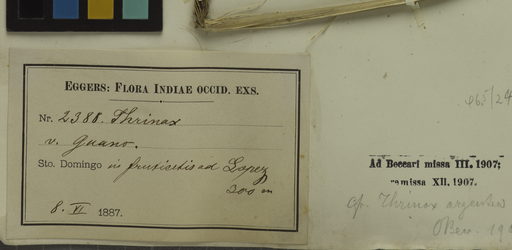 EGGERS: FLORA INDIAE OCCID. EXS.
Nr. 2388. Thrinax
v. Guano.
Sto. Domingo in fruticetis ad Lopez
200 m
8. VI 1887.
Ad Beccari missa III. 1907;
remissa XII. 1907.
Thrinax argentea